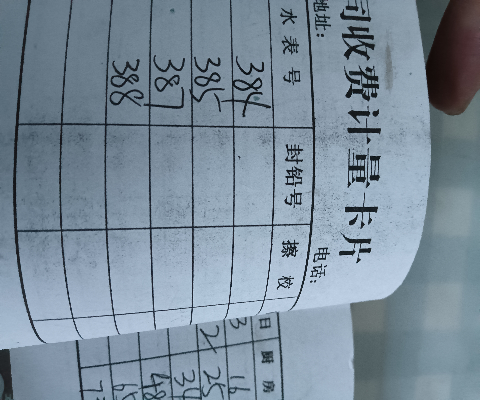 司收费计量卡片
地址: 电话:
水表号 封铅号 擦校
384
385
387
388
日 厨房
3 16
25
34
48